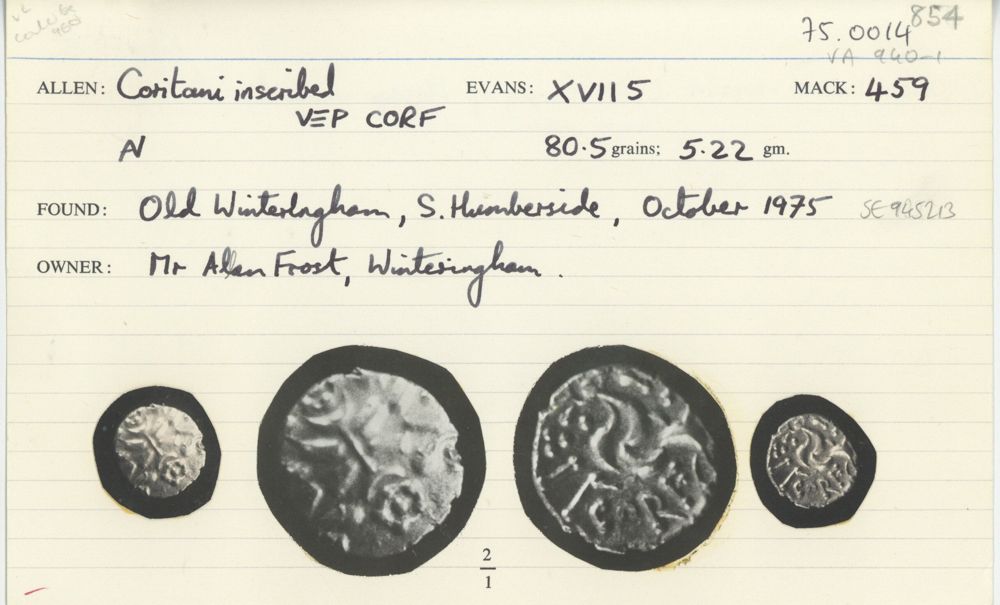 854
75.0014
VA 940-1
ALLEN: Coritani inscribed EVANS: XVII 5 MACK: 459
VEP CORF
N 80·5 grains; 5·22 gm.
FOUND: Old Winteringham, S. Humberside, October 1975 SE 945213
OWNER: Mr Alan Frost, Winteringham.
2
1